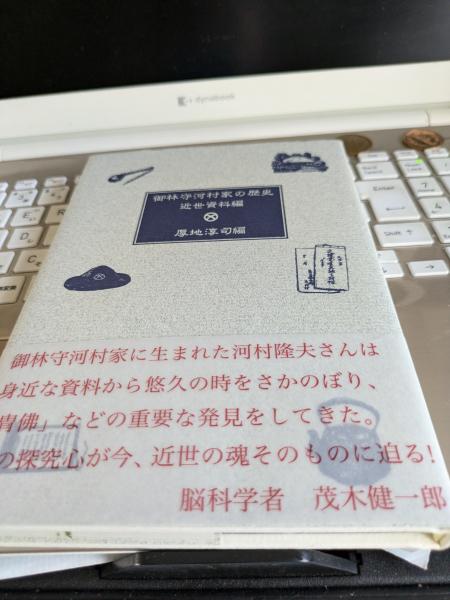 dynabook
御林守河村家の歴史
近世資料編
厚地淳司編
御林守河村家に生まれた河村隆夫さんは
身近な資料から悠久の時をさかのぼり、
冑佛」などの重要な発見をしてきた。
の探究心が今、近世の魂そのものに迫る!
脳科学者 茂木健一郎
Enter